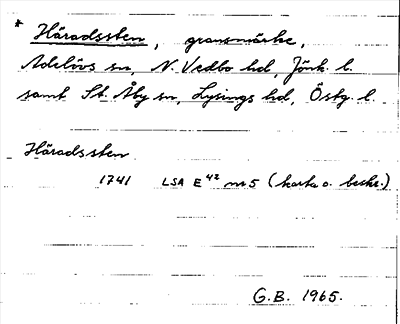 * Häradssten, gränsmärke,
Adelövs sn N. Vedbo hd, Jönk. l.
samt St. Åby sn, Lysings hd, Östg. l.
Häradssten
1741 LSA E 42 nr 5 (karta o. beskr.)
G.B. 1965.